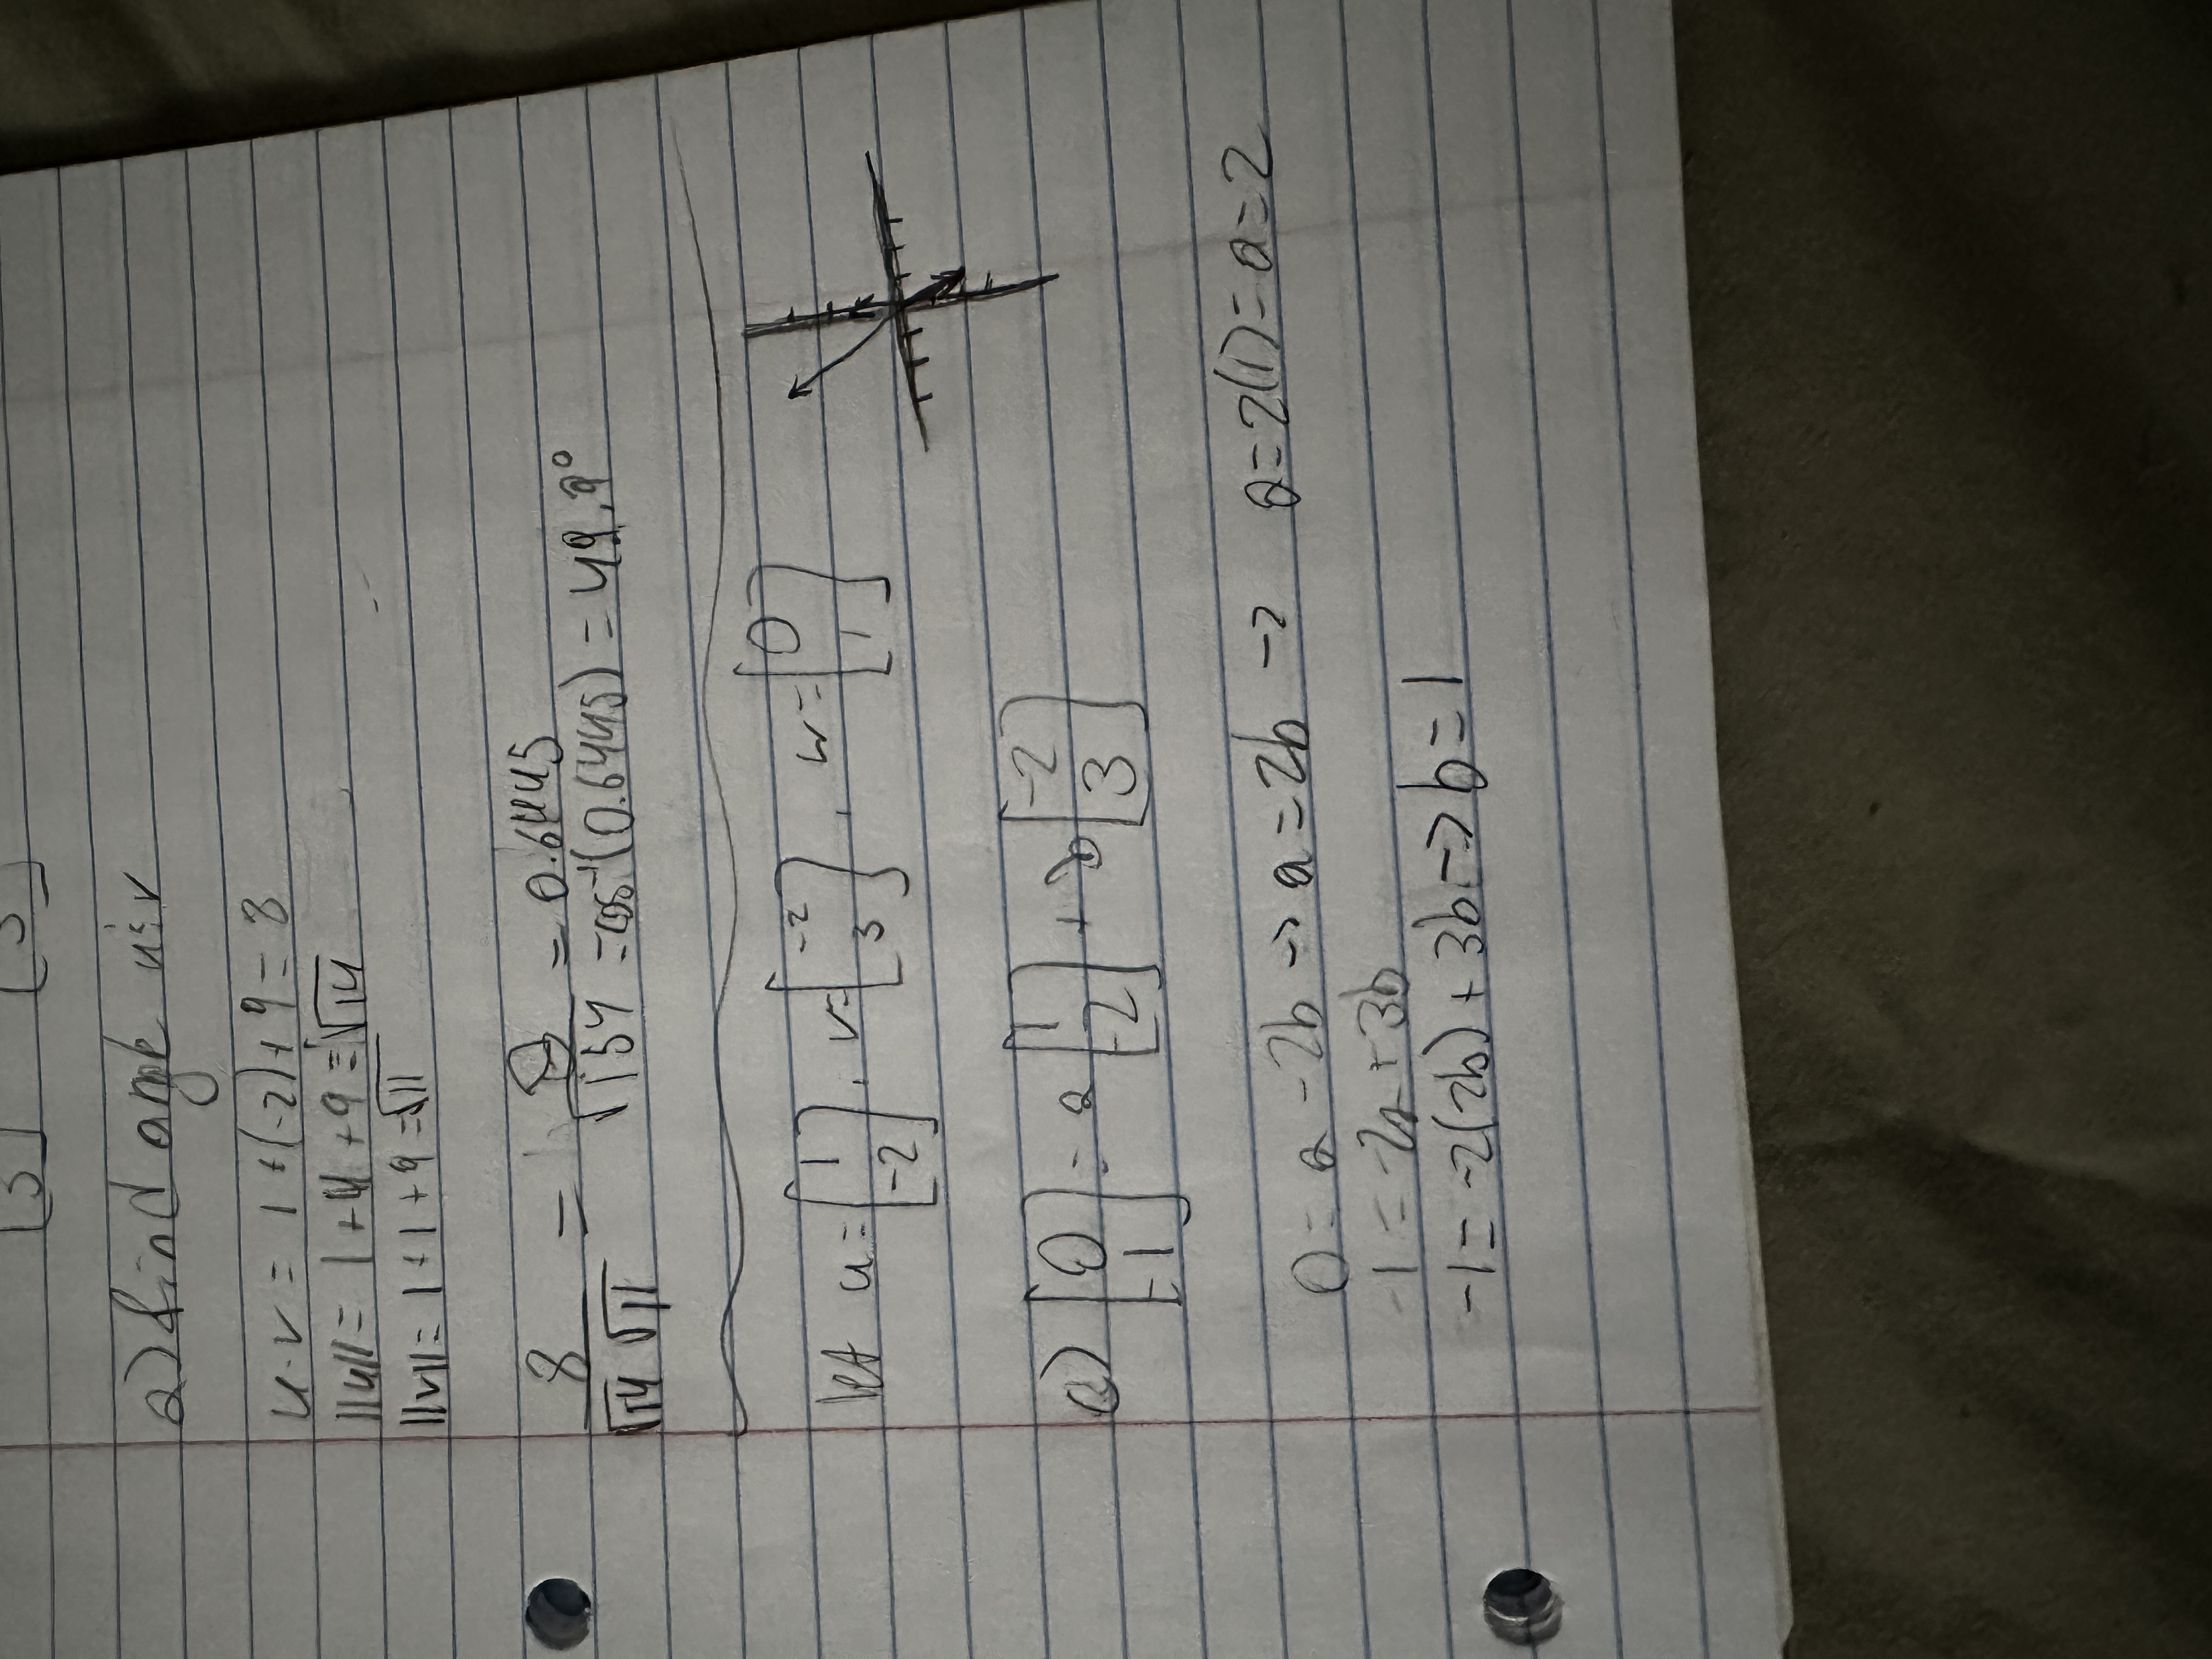 [3] [3]
a) find angle u & v
u·v = 1 + (-2) + 9 = 8
||u|| = 1 + 4 + 9 = √14
||v|| = 1 + 1 + 9 = √11
8/(√14 √11) = 8/√154 = 0.6445
= cos⁻¹(0.6445) = 49.9°
let u = [1 -2], v = [-2 3], w = [0 1]
c) [0 -1] = a [1 -2] + b [-2 3]
0 = a - 2b → a = 2b → a = 2(1) = a = 2
-1 = -2a + 3b
-1 = -2(2b) + 3b → b = 1